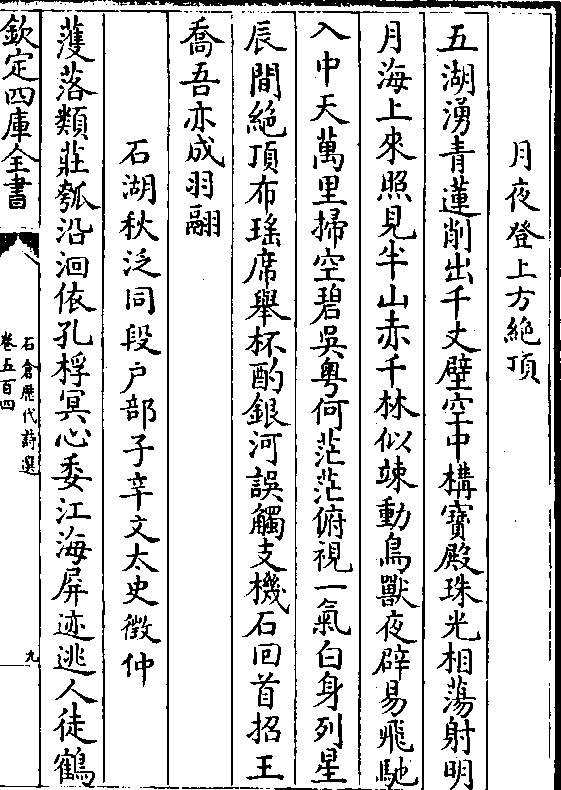 月夜登上方絶頂
五湖湧青蓮削出千丈壁空中構寶殿珠光相蕩射明
月海上來照見半山赤千林似竦動鳥獸夜辟易飛馳
入中天萬里掃空碧吳粤何茫茫俯視一氣白身列星
辰間絶頂布瑤席舉杯酌銀河誤觸支機石回首招王
喬吾亦成羽翮
石湖秋泛同段户部子辛文太史徵仲
濩落類莊瓠沿洄依孔桴冥心委江海屏迹逃人徒鶴
欽定四庫全書
石倉歷代詩選
卷五百四
九